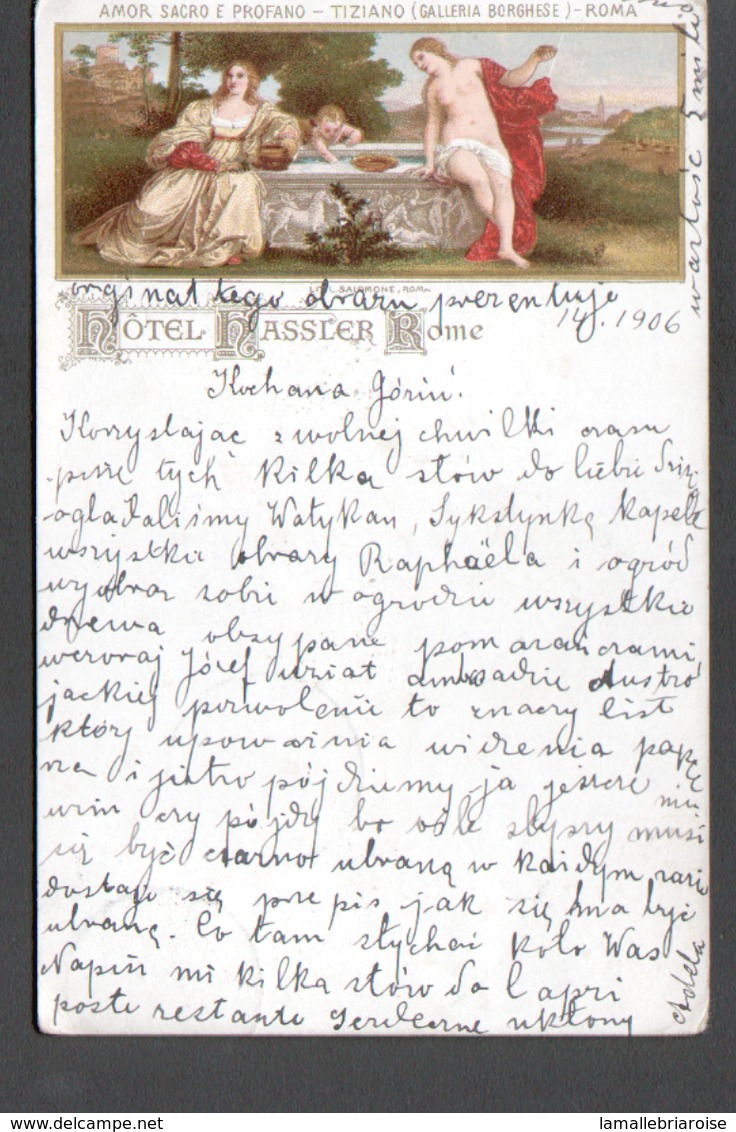 AMOR SACRO E PROFANO – TIZIANO (GALLERIA BORGHESE) – ROMA
LIT. L. SALOMONE, ROMA
orginał tego obrazu prezentuje
wartość 5 mili
HÔTEL HASSLER ROME
14. 1906
Kochana Góriu!
Korzystając z wolnej chwilki czasu
pisze tych kilka słów do Ciebie Dziś
oglądaliśmy Watykan, Sykstynkę Kapele
wszystkie obrazy Raphaëla i ogród
wyobraz sobie w ogrodzie wszystkie
drzewa obsypane pomarańczami,
wczoraj Józef wziat ambasadzie Austro
jackiej pozwolenie to znaczy list
który upoważnia widzenia papieża
na i jutro pójdziemy ja jeszcze nie
wim czy pójdę bo ode słyszy musi
się być czarno ubraną w każdym razie
dostaje się przepis jak się ma być
ubraną. Co tam słychać koło Was
Napisz mi kilka słów do Capri
poste restante Serdeczne ukłony
Adda
lamallebriaroise